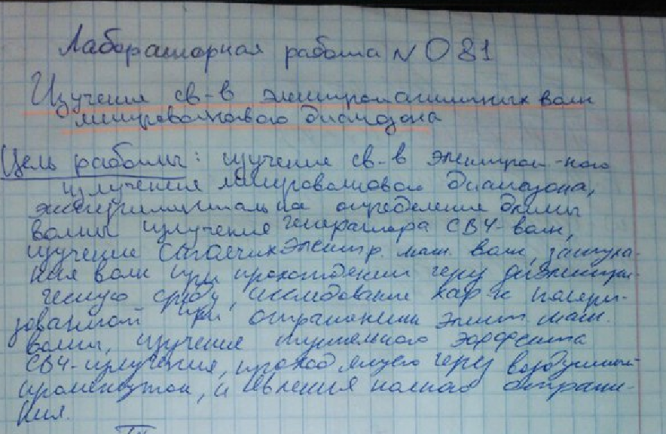 Лабораторная работа N 081
Изучение св-в электромагнитных волн
микроволнового диапазона
Цель работы: изучение св-в электром-ного
излучения микроволнового диапазона,
экспериментальное определение длины
волны излучения генератора СВЧ-волн,
изучение электр. маг. волн, затуха-
ния волн при прохождении через диэлектри-
ческую среду, исследование хар-к поляри-
зованной при отражении элект. маг.
волны, изучение туннельного эффекта
СВЧ-излучения, проходящего через воздушный
промежуток, и явления полного отраже-
ния.